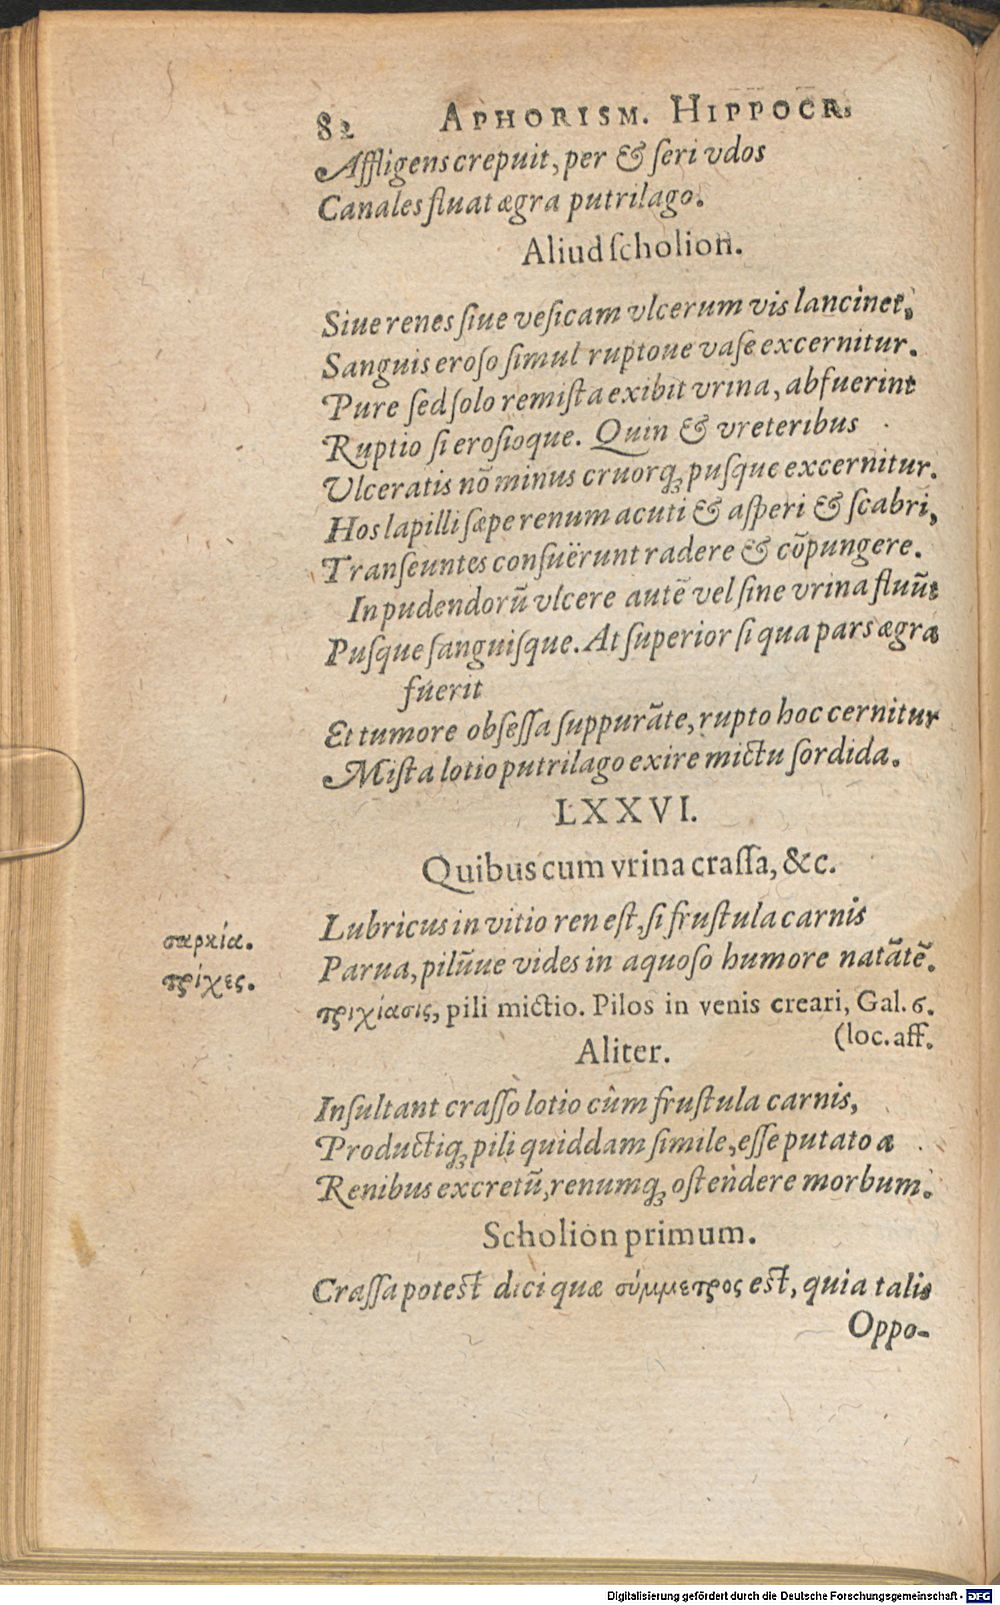 82 APHORISM. HIPPOCR.
Affligens crepuit, per & ſeri vdos
Canales fluat ægra putrilago.
Aliud ſcholion.
Siue renes ſiue veſicam vlcerum vis lancinet,
Sanguis eroſo ſimul ruptoue vaſe excernitur.
Pure ſed ſolo remiſta exibit vrina, abfuerint
Ruptio ſi eroſioque. Quin & vreteribus
Vlceratis nō minus cruorq́ꝫ puſque excernitur.
Hos lapilli ſæpe renum acuti & aſperi & ſcabri,
Tranſeuntes conſuërunt radere & cōpungere.
In pudendorū vlcere autē vel ſine vrina fluūt
Puſque ſanguiſque. At ſuperior ſi qua pars ægra
fuerit
Et tumore obſeſſa ſuppurāte, rupto hoc cernitur
Miſta lotio putrilago exire mictu ſordida.
LXXVI.
Quibus cum vrina craſſa, &c.
Lubricus in vitio ren eſt, ſi fruſtula carnis
σαρκία.
Parua, pilūue vides in aquoſo humore natātē.
τρίχες.
τριχίασις, pili mictio. Pilos in venis creari, Gal. 6.
(loc. aff.
Aliter.
Inſultant craſſo lotio cùm fruſtula carnis,
Productiqꝫ pili quiddam ſimile, eſſe putato a
Renibus excretū, renumqꝫ oſtendere morbum.
Scholion primum.
Craſſa poteſt dici quæ σύμμετρος eſt, quia talis
Oppo-
Digitalisierung gefördert durch die Deutsche Forschungsgemeinschaft - DFG